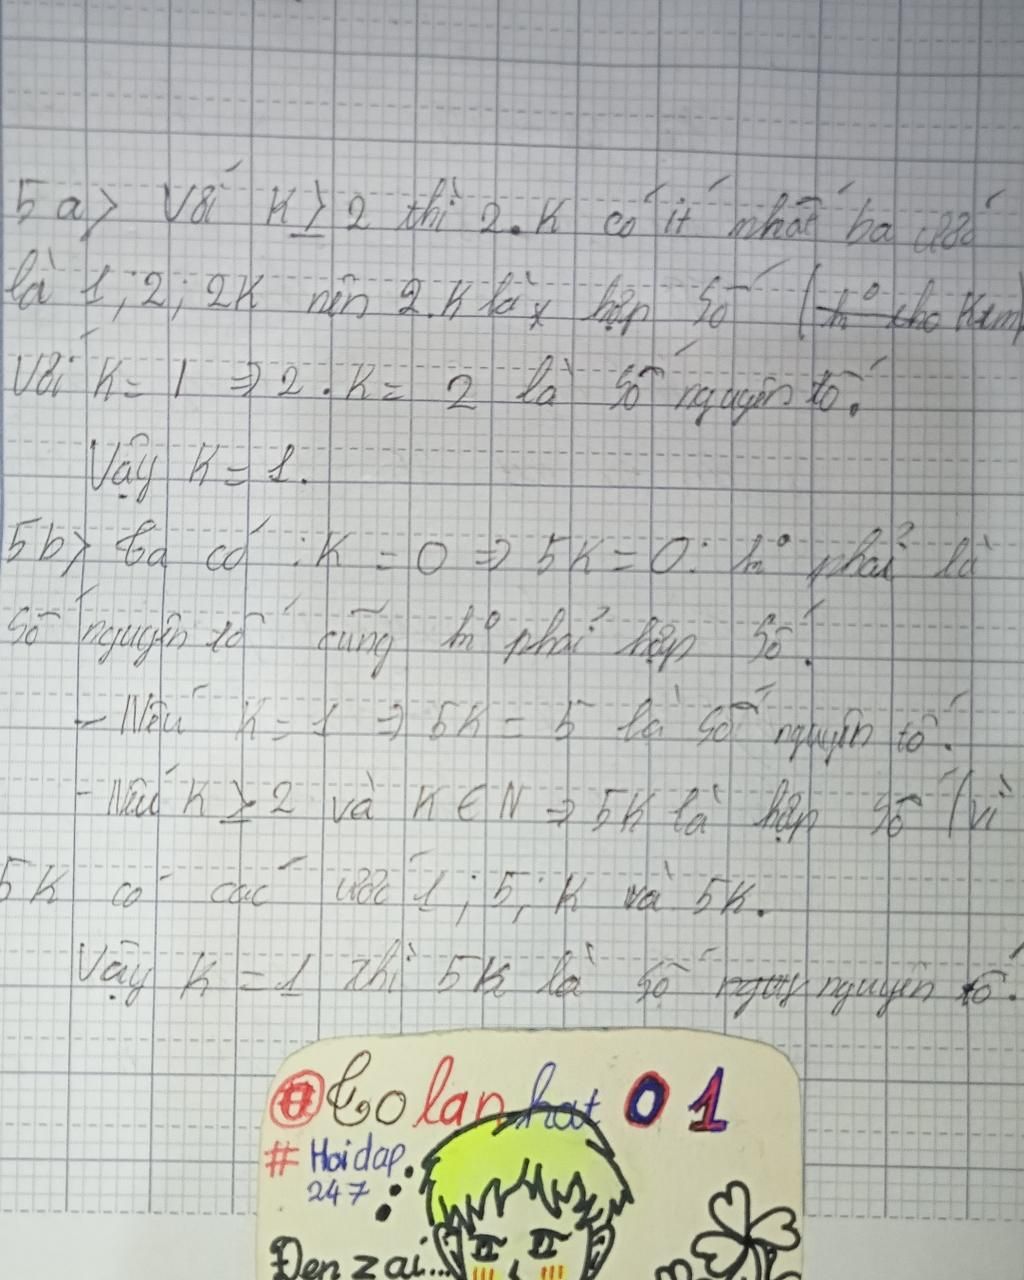 5a> Với K ≥ 2 thì 2.K có ít nhất ba ước
là 1; 2; 2K nên 2.K là hợp số (
Với K = 1 ⇒ 2.K = 2 là số nguyên tố.
Vậy K = 1.
5b> Ta có : K = 0 ⇒ 5K = 0: k° phải là
số nguyên tố cũng k° phải hợp số.
- Nếu K = 1 ⇒ 5K = 5 là số nguyên tố.
- Nếu K ≥ 2 và K ∈ N ⇒ 5K là hợp số (vì
5K có các ước 1; 5; K và 5K.
Vậy K = 1 thì 5K là số nguyên tố.
Tolanhat 01
# Hoidap
247
Đenzai...